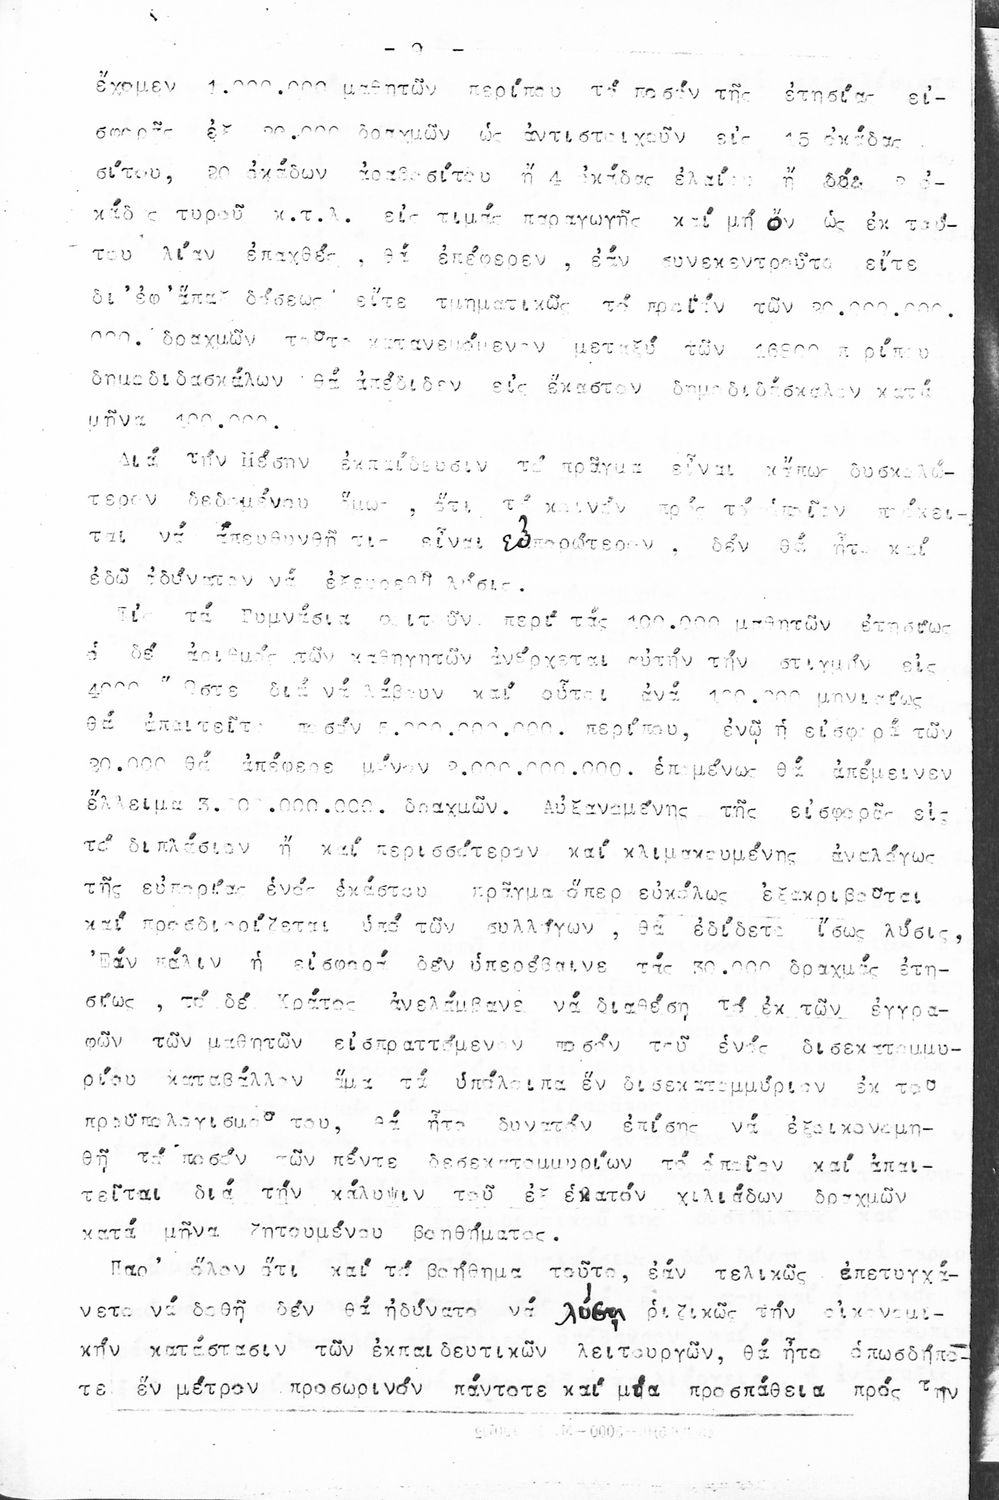 - 9 -
ἔχομεν 1.000.000 μαθητῶν περίπου τό ποσόν τῆς ἐτησίας εἰ-
σφορᾶς ἐξ 20.000 δραχμῶν ὡς ἀντιστοιχοῦν εἰς 15 ὀκάδας
σίτου, 20 ὀκάδων ἀραβοσίτου ἤ 4 ὀκάδας ἐλαίου ἤ 2 ὀ-
κάδας τυροῦ κ.τ.λ. εἰς τιμάς παραγωγῆς καί μή ὄν ὡς ἐκ τού-
του λίαν ἐπαχθές, θά ἐπέφερεν, ἐάν συνεκεντροῦτο εἴτε
δι'ἐφ'ἅπαξ δόσεως εἴτε τμηματικῶς τό προϊόν τῶν 20.000.000.
000. δραχμῶν τοῦτο κατανεμόμενον μεταξύ τῶν 16800 περίπου
δημοδιδασκάλων θά ἀπέδιδεν εἰς ἕκαστον δημοδιδάσκαλον κατά
μῆνα 100.000.
Διά τήν Μέσην ἐκπαίδευσιν τό πρᾶγμα εἶναι κάπως δυσκολώ-
τερον δεδομένου ὅμως, ὅτι τό κοινόν πρός τό ὁποῖον πρόκει-
ται νά ἀπευθυνθῆ τις εἶναι εὐπορώτερον, δέν θά ἦτο καί
ἐδῶ ἀδύνατον νά ἐξευρεθῆ λύσις.
Εἰς τά Γυμνάσια φοιτοῦν περί τάς 100.000 μαθητῶν ἐτησίως
ὁ δέ ἀριθμός τῶν καθηγητῶν ἀνέρχεται αὐτήν τήν στιγμήν εἰς
4000 Ὥστε διά νά λάβουν καί οὗτοι ἀνά 100.000 μηνιαίως
θά ἀπαιτεῖτο ποσόν 5.000.000.000. περίπου, ἐνῷ ἡ εἰσφορά τῶν
20.000 θά ἀπέφερε μόνον 2.000.000.000. ἑπομένως θά ἀπέμεινεν
ἔλλειμα 3.000.000.000. δραχμῶν. Αὐξανομένης τῆς εἰσφορᾶς εἰς
τό διπλάσιον ἤ καί περισσότερον καί κλιμακουμένης ἀναλόγως
τῆς εὐπορίας ἑνός ἑκάστου πρᾶγμα ὅπερ εὐκόλως ἐξακριβοῦται
καί προσδιορίζεται ὑπό τῶν συλλόγων, θά ἐδίδετο ἴσως λύσις,
Ἐάν πάλιν ἡ εἰσφορά δέν ὑπερέβαινε τάς 30.000 δραχμάς ἐτη-
σίως, τό δέ Κράτος ἀνελάμβανε νά διαθέση τό ἐκ τῶν ἐγγρα-
φῶν τῶν μαθητῶν εἰσπραττόμενον ποσόν τοῦ ἑνός δισεκατομμυ-
ρίου καταβάλλον ἅμα τά ὑπόλοιπα ἕν δισεκατομμύριον ἐκ τοῦ
προϋπολογισμοῦ του, θά ἦτο δυνατόν ἐπίσης νά ἐξοικονομη-
θῆ τό ποσόν τῶν πέντε δεσεκατομμυρίων τό ὁποῖον καί ἀπαι-
τεῖται διά τήν κάλυψιν τοῦ ἐξ ἑκατόν χιλιάδων δραχμῶν
κατά μῆνα ζητουμένου βοηθήματος.
Παρ' ὅλον ὅτι καί τό βοήθημα τοῦτο, ἐάν τελικῶς ἐπετυγχά-
νετο νά δοθῆ δέν θά ἠδύνατο νά λύση ριζικῶς τήν οἰκονομι-
κήν κατάστασιν τῶν ἐκπαιδευτικῶν λειτουργῶν, θά ἦτο ὁπωσδήπο-
τε ἕν μέτρον προσωρινόν πάντοτε καί μία προσπάθεια πρός τήν